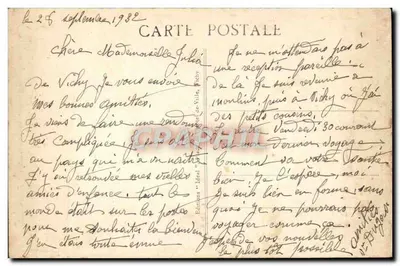 le 28 septembre 1932
CARTE POSTALE
Chère Mademoiselle Julia
De Vichy je vous envoie
mes bonnes amitiés.
Je viens de faire une randonnée
très compliquée. Je suis
au pays qui m'a vu naître
J'y ai retrouvé mes vieilles
amies d'enfance. Tout le
monde était sur les portes
pour me souhaiter la bienvenue
J'en étais toute émue
Je ne m'attendais pas à
une réception pareille.
de là je suis revenue à
moulins, puis à Vichy où j'ai
des petits cousins.
Vendredi 30 courant
voyage
Comment va votre santé
bien. Je l'espère, moi
je suis bien en forme, sans
quoi je ne pourrais pas
voyager comme ça.
de vos nouvelles
le plus tôt possible
amitiés